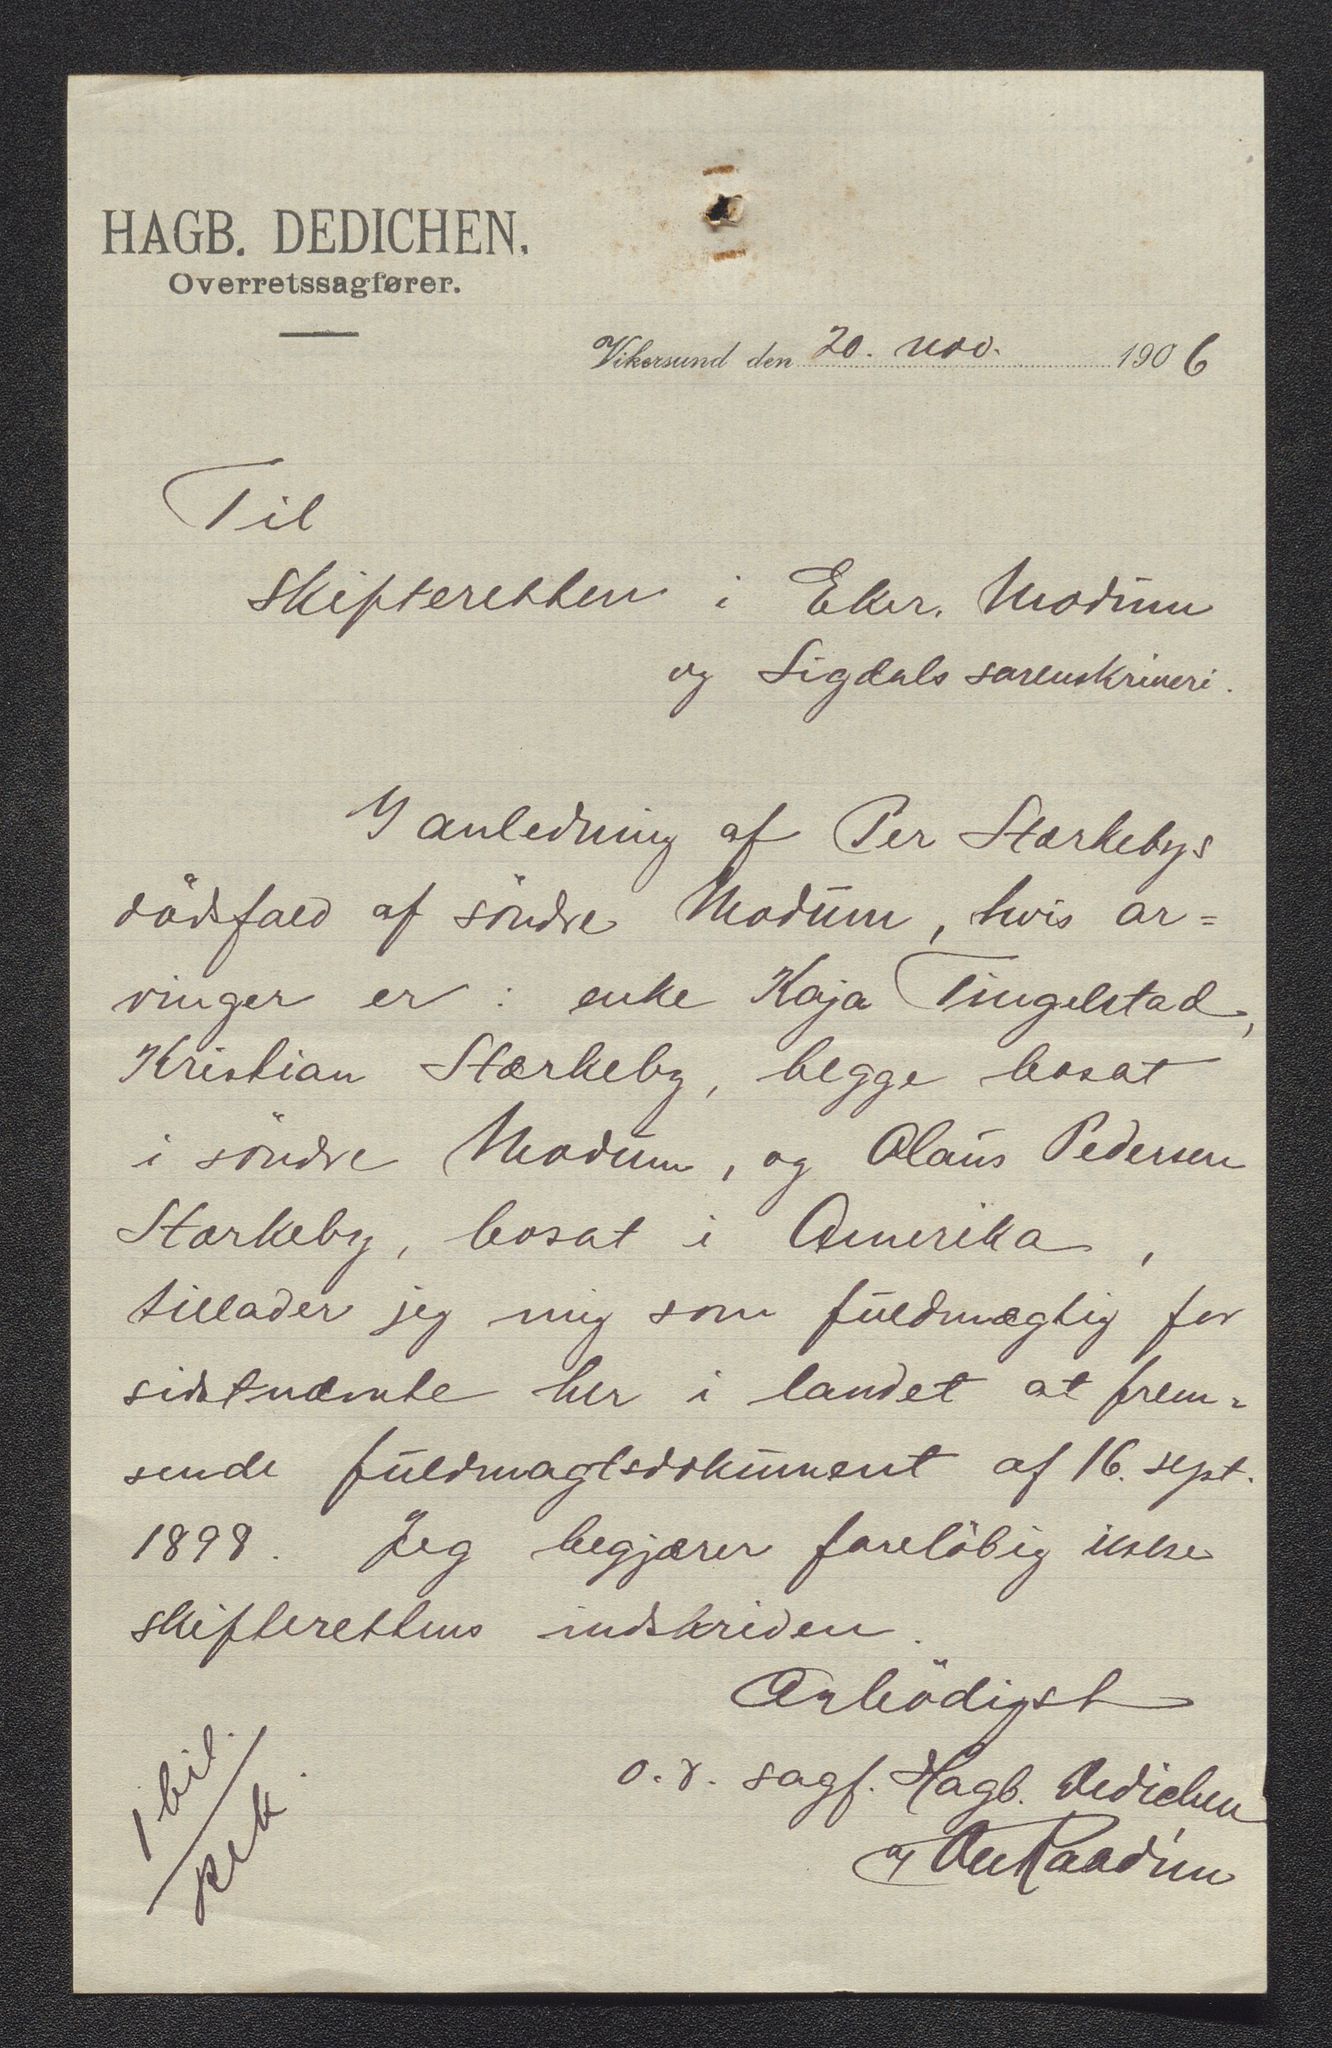 HAGB. DEDICHEN.
Overretssagfører.
Vikersund den 20. nov. 1906
Til
skifteretten i Eker, Modum
og Sigdals sorenskriveri.
I anledning af Per Stærkebys
dödsfald af söndre Modum, hvis ar=
vinger er: enke Kaja Tingelstad,
Kristian Stærkeby, begge bosat
i söndre Modum, og Olaus Pedersen
Stærkeby, bosat i Amerika,
tillader jeg mig som fuldmægtig for
sidstnævnte her i landet at frem=
sende fuldmagtsdokument af 16. sept.
1898. Jeg begjærer foreløbig ikke
skifterettens indskriden.
Ærbödigst
o.r. sagf. Hagb. Dedichen
1 bil.
rek.